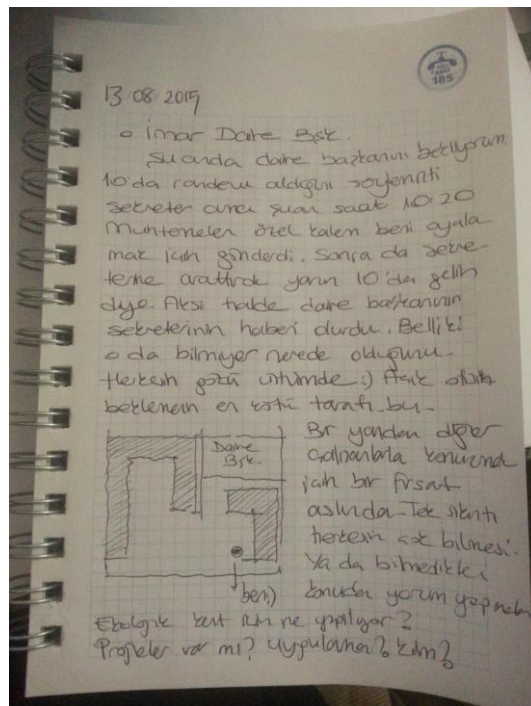 ALO
185
13 08 2015
o İmar Daire Bşk.
Şu anda daire başkanını bekliyorum.
10'da randevu aldığını söylemişti
sekreter ama şuan saat 10:20
Muhtemelen özel kalem beni oyala
mak için gönderdi. Sonra da sekre-
terine arattırdı yarın 10'da gelin
diye. Aksi halde daire başkanının
sekreterinin haberi olurdu. Belli ki
o da bilmiyor nerede olduğunu.
Herkesin gözü üstümde :) Açık ofiste
beklemenin en kötü tarafı bu.
Bir yandan diğer
çalışanlarla
için bir fırsat
aslında. Tek sıkıntı
herkesin çok bilmesi.
Ya da bilmedikleri
konuda yorum yapmaları
Daire
Bşk.
ben:)
Ekolojik kent için ne yapılıyor?
Projeler var mı? Uygulanan? Kim?